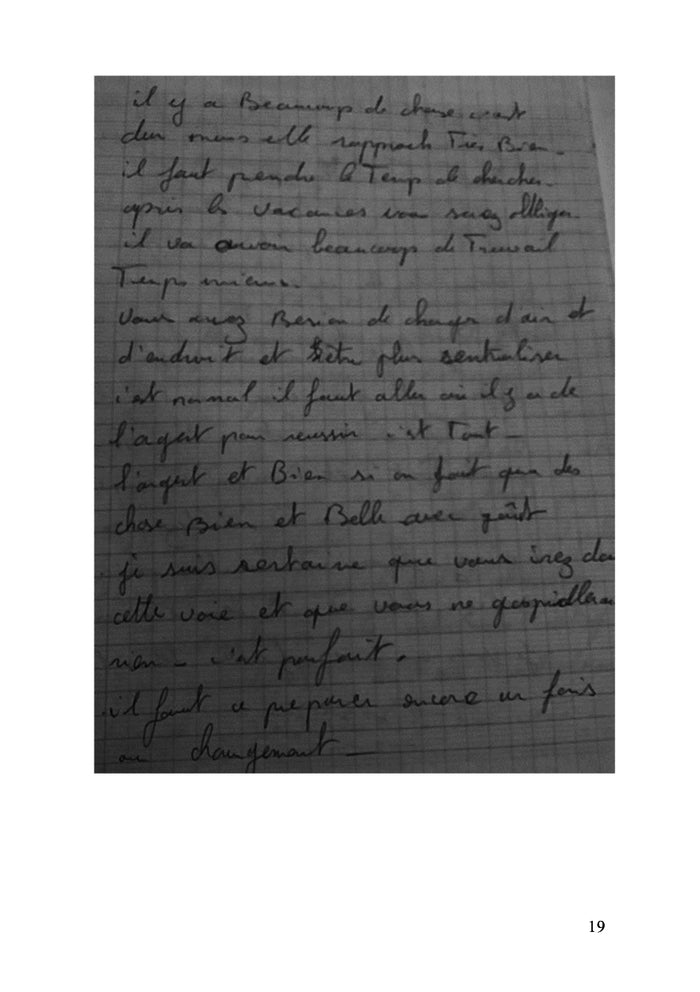 il y a Beaucoup de chose c'est
deu mens elle rapproch Très Bien.
il faut prendre le Temp de chercher.
après les vacances vou serez obliger
il va avoir beaucoup de Travail
Temps mieux.
Vous avez Besion de changer d'air et
d'endroit et être plus sentraliser
c'est normal il faut aller où il y a de
l'agert pour reussir c'est Tout -
l'argent et Bien si on fait que des
chose Bien et Belle avec goût
je suis sertaine que vous irez da
cette voie et que vous ne
rien - c'est parfait.
il faut ce preparer encore un fois
au changement —
19